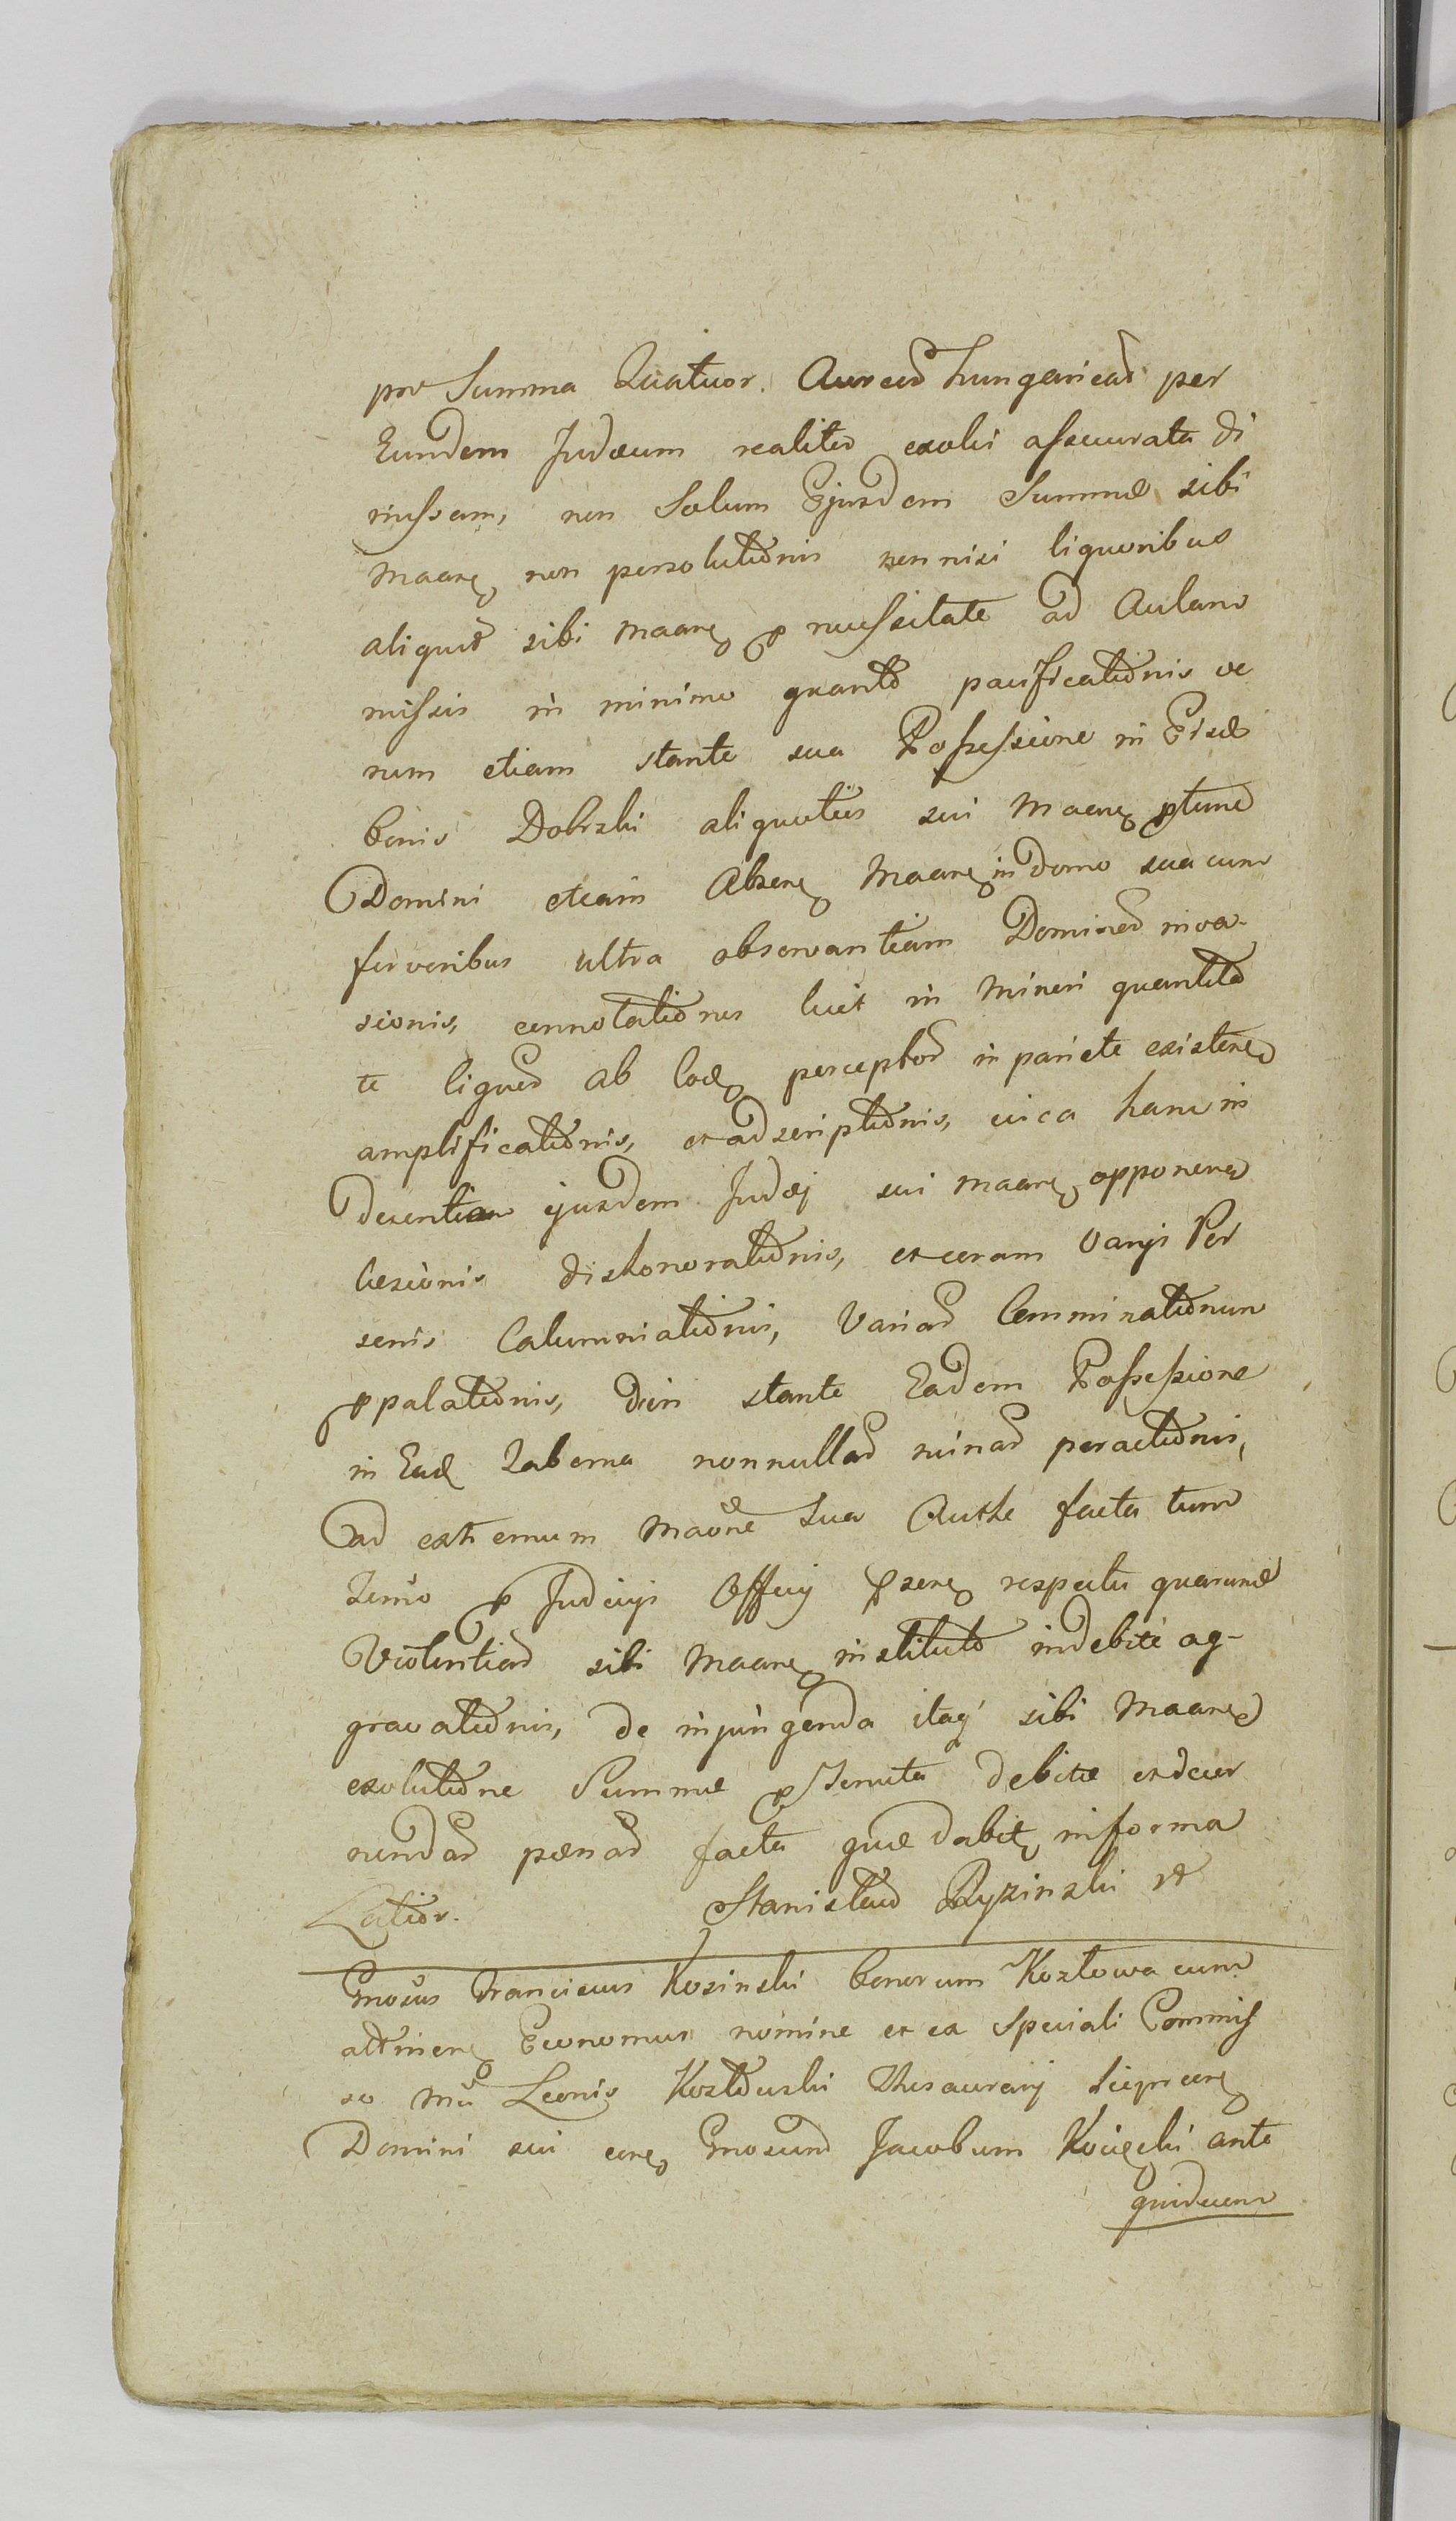 pro Summa Quatuor Aureor Hungarical per
Eundem Judæum realiter exolvi assecurata di
missam, non Solum Ejusdem Summæ sibi
Maane non persolutionis non nisi liquoribus
aliquid sibi Maane p necessitate ad Aulam
missis in minimo quanto pacificationis ve
rum etiam stante sua Possessione in Eisd
bonis Dobrski aliquoties sui Maane ptunc
Domini etiam Absene Maane in domo sua cum
furoribus ultra observantiam Domined inva-
sionis, connotationes licet in Minori quantita
te liquor ab Eod perceptor in pariete existene
amplificationis, et adscriptionis, circa hanc in
decentiam ejusdem Judæi sui Maane opponene
læsionis dishonorationis, et coram Varijs Per
sonis Calumniationis, Variar Comminationum
ppalationis, dein stante Eadem Possessione
in Ead Taberna nonnullar ruinar peractionis,
ad extremum Maone Sua Authe facta tum
Termo p Judicij Officij psene respectu quarund
Violentiar sibi Maane instituto indebite ag-
gravationis, de injungenda itaq sibi Maane
exolutione Summæ p Tenuta debitæ et decer
nendar poenar facta quæ dabit informa
Lator. Stanislaus Ryzinski
Gnosus Franciscus Kosinski bonorum Kozłowa cum
attinene Economus nomine et ex Speciali Commis
so Mci Leonis Kozłowski Thesaurarij
Domini sui cone Gnosum Jacobum Kocięcki ante
quidecem